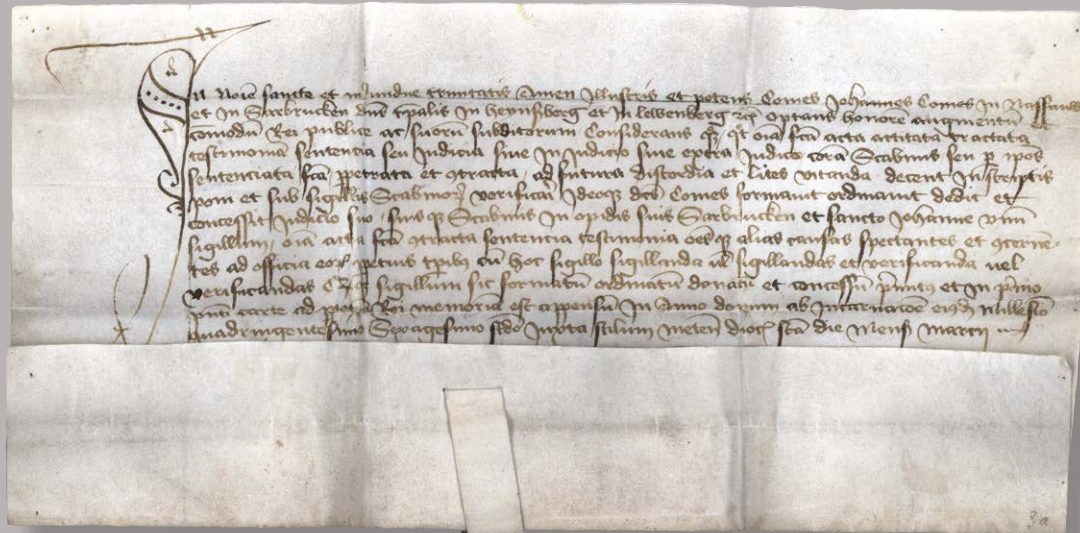 In noīe sancte et indiuidue trinitatis Amen Illustris et potens Comes Johannes Comes in Nassauw
et in Sarbrucken dn̄s tp̄alis in heynßberg et in lewenberg rc̄ optans honorē augmentū
comodū Rei publice ac suorū subditorum Considerans qꝫ qt oīa fc̄a acta actitata tractata
testimonia sentencia seu Judicia siue in Judicio siue extra Judiciū corā Scabinis seu ꝑ ip̄os
sentenciata fc̄a ꝑpetrata et ꝯtracta ad futura discordia et lites vitanda decent in scriptis
poni et sub sigillis Scabinoꝝ verificari Ideoqꝫ dc̄us Comes formauit ordinauit dedit et
concessit Judicio suo suisqꝫ Scabinis in opidis suis Sarbrucken et sancto Johanne vnū
sigillum oīa acta fc̄a ꝯtracta sentencia testimonia oēsqꝫ alias causas spectantes et ꝯcernē-
tes ad officia eoꝝ ꝑpetuis tp̄ibꝫ cū hoc sigillo sigillanda uel sigillandas et verificanda uel
verificandas sigillum sic formatū ordinatū donatū et concessū et in pͥmo
pn̄ti carte ad Rei memoriā est appensū in Anno domini ab incarnacōe eiusdē Millesīo
quadringentesimo Septuagesimo sc̄do Juxta stilum Meteñ die Mensis Marcii
3a